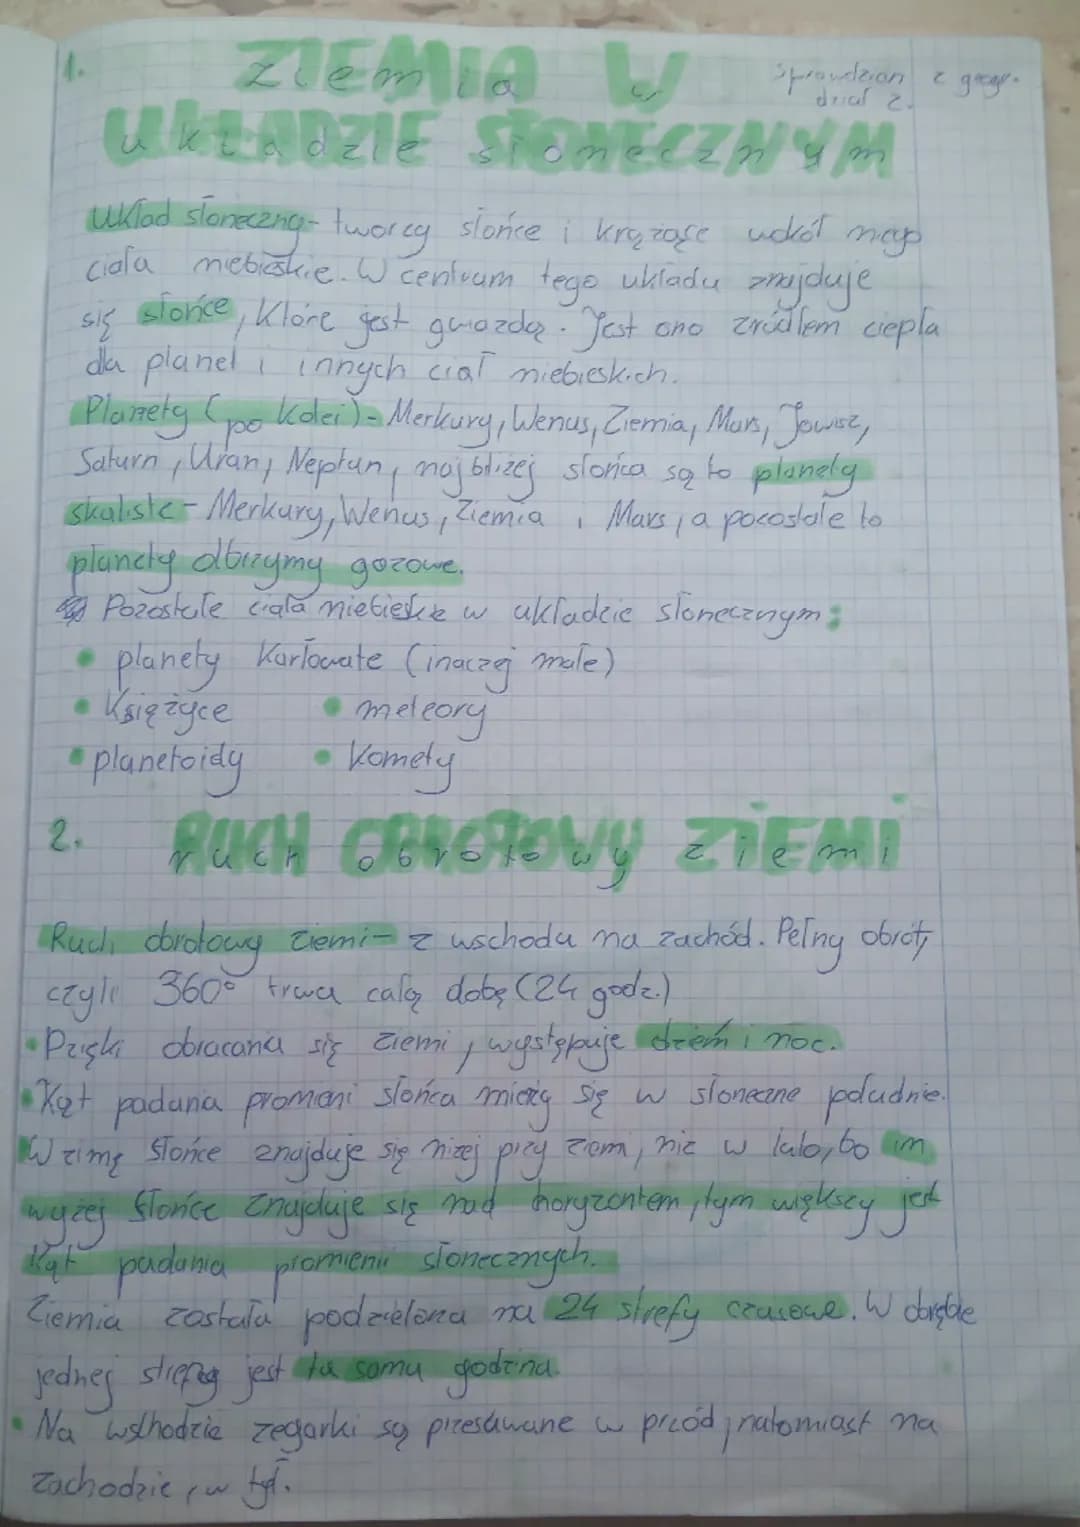 1. ZIEMIA W
Sprawdzian z geogr.
dział 2.
UKŁADZIE SŁONECZNYM
Układ słoneczny - tworzy słońce i krążące wokół niego
ciała niebieskie. W centrum tego układu znajduje
się słońce, które jest gwiazdą. Jest ono źródłem ciepła
dla planet i innych ciał niebieskich.
Planety (po kolei) - Merkury, Wenus, Ziemia, Mars, Jowisz,
Saturn, Uran, Neptun, najbliżej słońca są to planety
skaliste - Merkury, Wenus, Ziemia i Mars, a pozostałe to
planety olbrzymy gazowe.
Pozostałe ciała niebieskie w układzie słonecznym:
• planety karłowate (inaczej małe)
• Księżyce • meteory
• planetoidy • Komety
2. RUCH OBROTOWY ZIEMI
Ruch obrotowy ziemi - z wschodu na zachód. Pełny obrót,
czyli 360° trwa całą dobę (24 godz.)
• Dzięki obracania się ziemi, występuje dzień i noc.
• Kąt padania promieni słońca mierzy się w słoneczne południe.
W zimę słońce znajduje się niżej przy ziemi, niż w lato, bo im
wyżej słońce znajduje się nad horyzontem, tym większy jest
kąt padania promieni słonecznych.
Ziemia została podzielona na 24 strefy czasowe. W obrębie
jednej strefy jest ta sama godzina.
• Na wschodzie zegarki są przesuwane w przód, natomiast na
zachodzie, w tył.